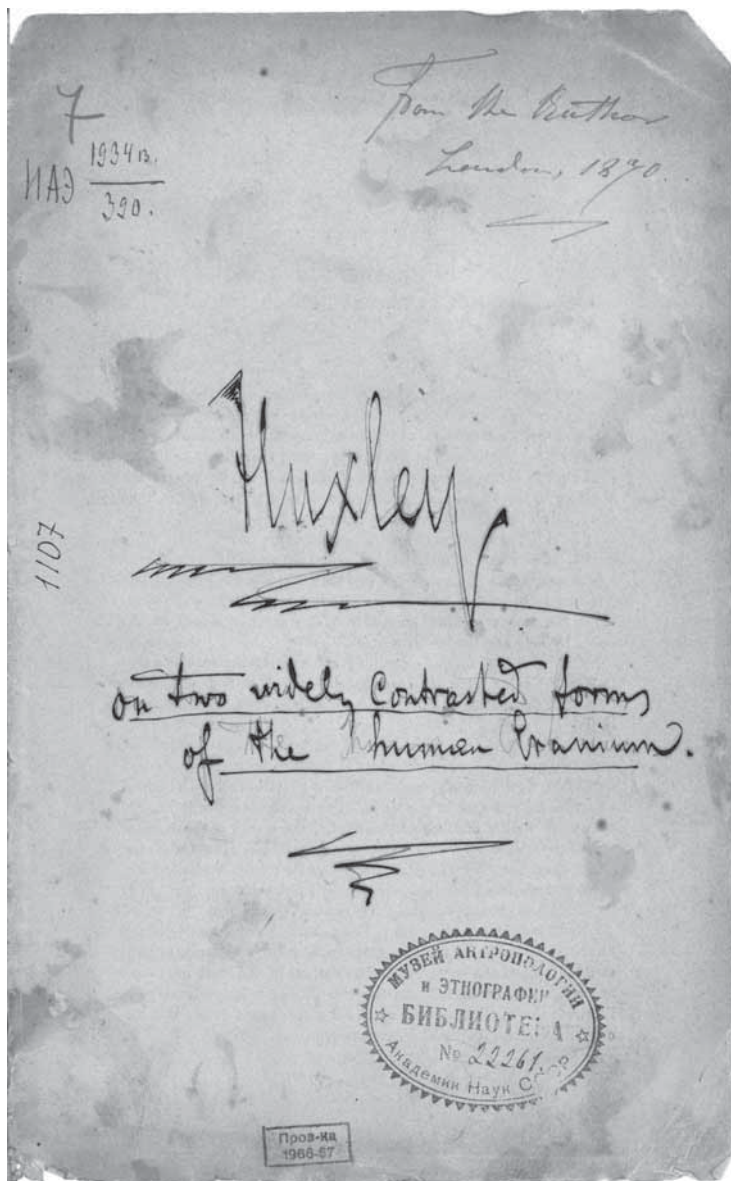 7
ИАЭ 1934 в.
390.
From the Author
London, 1870.
1107
Huxley,
on two widely Contrasted forms
of the human Cranium.
МУЗЕЙ АНТРОПОЛОГИИ
и ЭТНОГРАФИИ
БИБЛИОТЕКА
№ 22261
Академии Наук СССР
Пров-ка
1966-67